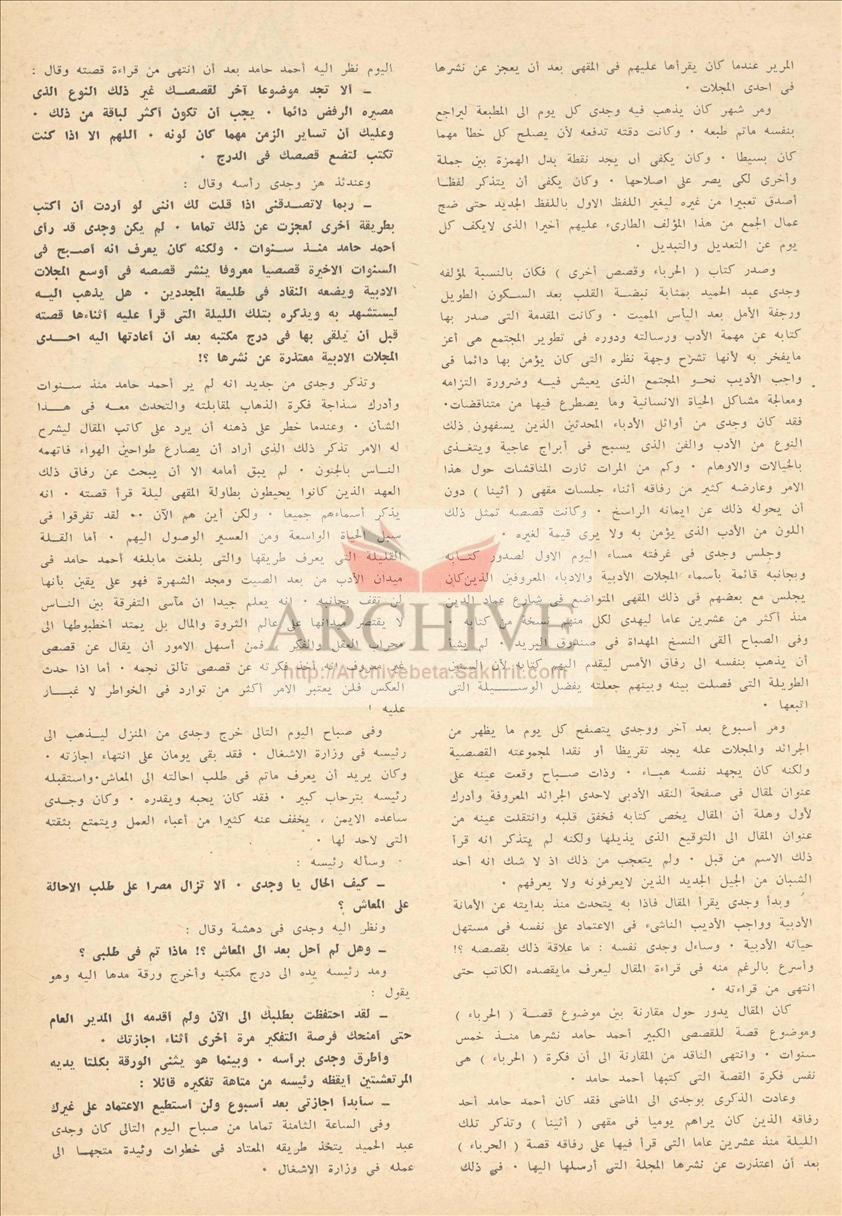 المرير عندما كان يقرأها عليهم فى المقهى بعد أن يعجز عن نشرها
فى احدى المجلات ٠
ومر شهر كان يذهب فيه وجدى كل يوم الى المطبعة ليراجع
بنفسه ماتم طبعه ٠ وكانت دقته تدفعه لأن يصلح كل خطأ مهما
كان بسيطا ٠ وكان يكفى أن يجد نقطة بدل الهمزة بين جملة
وأخرى لكى يصر على اصلاحها ٠ وكان يكفى أن يتذكر لفظا
أصدق تعبيرا من غيره ليغير اللفظ الاول باللفظ الجديد حتى ضج
عمال الجمع من هذا المؤلف الطارىء عليهم أخيرا الذى لايكف كل
يوم عن التعديل والتبديل ٠
وصدر كتاب ( الحرباء وقصص أخرى ) فكان بالنسبة لمؤلفه
وجدى عبد الحميد بمثابة نبضة القلب بعد السكون الطويل
ورجفة الأمل بعد اليأس المميت ٠ وكانت المقدمة التى صدر بها
كتابه عن مهمة الأدب ورسالته ودوره فى تطوير المجتمع هى أعز
مايفخر به لأنها تشرح وجهة نظره التى كان يؤمن بها دائما فى
واجب الأديب نحو المجتمع الذى يعيش فيه وضرورة التزامه
ومعالجة مشاكل الحياة الانسانية وما يصطرع فيها من متناقضات٠
فقد كان وجدى من أوائل الأدباء المحدثين الذين يسفهون ذلك
النوع من الأدب والفن الذى يسبح فى أبراج عاجية ويتغذى
بالخيالات والاوهام ٠ وكم من المرات ثارت المناقشات حول هذا
الامر وعارضه كثير من رفاقه أثناء جلسات مقهى ( أثينا ) دون
أن يحوله ذلك عن ايمانه الراسخ ٠ وكانت قصصه تمثل ذلك
اللون من الأدب الذى يؤمن به ولا يرى قيمة لغيره ٠
وجلس وجدى فى غرفته مساء اليوم الاول لصدور كتابه
وبجانبه قائمة بأسماء المجلات الأدبية والادباء المعروفين الذين كان
يجلس مع بعضهم فى ذلك المقهى المتواضع فى شارع عماد الدين
منذ أكثر من عشرين عاما ليهدى لكل منهم نسخة من كتابه ٠
وفى الصباح ألقى النسخ المهداة فى صندوق البريد ٠ لم يشأ
أن يذهب بنفسه الى رفاق الأمس ليقدم اليهم كتابه لأن السنين
الطويلة التى فصلت بينه وبينهم جعلته يفضل الوسيلة التى
اتبعها ٠
ومر أسبوع بعد آخر ووجدى يتصفح كل يوم ما يظهر من
الجرائد والمجلات عله يجد تقريظا أو نقدا لمجموعته القصصية
ولكنه كان يجهد نفسه هباء ٠ وذات صباح وقعت عينه على
عنوان لمقال فى صفحة النقد الأدبى لاحدى الجرائد المعروفة وأدرك
لأول وهلة أن المقال يخص كتابه فخفق قلبه وانتقلت عينه من
عنوان المقال الى التوقيع الذى يذيلها ولكنه لم يتذكر انه قرأ
ذلك الاسم من قبل ٠ ولم يتعجب من ذلك اذ لا شك انه أحد
الشبان من الجيل الجديد الذين لايعرفونه ولا يعرفهم ٠
وبدأ وجدى يقرأ المقال فاذا به يتحدث منذ بدايته عن الأمانة
الأدبية وواجب الأديب الناشىء فى الاعتماد على نفسه فى مستهل
حياته الأدبية ٠ وساءل وجدى نفسه : ما علاقة ذلك بقصصه ؟!
وأسرع بالرغم منه فى قراءة المقال ليعرف مايقصده الكاتب حتى
انتهى من قراءته ٠
كان المقال يدور حول مقارنة بين موضوع قصة ( الحرباء )
وموضوع قصة للقصصى الكبير أحمد حامد نشرها منذ خمس
سنوات ٠ وانتهى الناقد من المقارنة الى أن فكرة ( الحرباء ) هى
نفس فكرة القصة التى كتبها أحمد حامد ٠
وعادت الذكرى بوجدى الى الماضى فقد كان أحمد حامد أحد
رفاقه الذين كان يراهم يوميا فى مقهى ( أثينا ) وتذكر تلك
الليلة منذ عشرين عاما التى قرأ فيها على رفاقه قصة ( الحرباء )
بعد أن اعتذرت عن نشرها المجلة التى أرسلها اليها ٠ فى ذلك
اليوم نظر اليه أحمد حامد بعد أن انتهى من قراءة قصته وقال :
ـ ألا تجد موضوعا آخر لقصصك غير ذلك النوع الذى
مصيره الرفض دائما ٠ يجب أن تكون أكثر لباقة من ذلك ٠
وعليك أن تساير الزمن مهما كان لونه ٠ اللهم الا اذا كنت
تكتب لتضع قصصك فى الدرج ٠
وعندئذ هز وجدى رأسه وقال :
ـ ربما لاتصدقنى اذا قلت لك اننى لو أردت أن أكتب
بطريقة أخرى لعجزت عن ذلك تماما ٠ لم يكن وجدى قد رأى
أحمد حامد منذ سنوات ٠ ولكنه كان يعرف انه أصبح فى
السنوات الاخيرة قصصيا معروفا ينشر قصصه فى أوسع المجلات
الادبية ويضعه النقاد فى طليعة المجددين ٠ هل يذهب اليه
ليستشهد به ويذكره بتلك الليلة التى قرأ عليه أثناءها قصته
قبل أن يلقى بها فى درج مكتبه بعد أن أعادتها اليه احدى
المجلات الادبية معتذرة عن نشرها ؟!
وتذكر وجدى من جديد انه لم ير أحمد حامد منذ سنوات
وأدرك سذاجة فكرة الذهاب لمقابلته والتحدث معه فى هذا
الشأن ٠ وعندما خطر على ذهنه أن يرد على كاتب المقال ليشرح
له الامر تذكر ذلك الذى أراد أن يصارع طواحين الهواء فاتهمه
الناس بالجنون ٠ لم يبق أمامه الا أن يبحث عن رفاق ذلك
العهد الذين كانوا يحيطون بطاولة المقهى ليلة قرأ قصته ٠ انه
يذكر أسماءهم جميعا ٠ ولكن أين هم الآن ٠٠ لقد تفرقوا فى
سبل الحياة الواسعة ومن العسير الوصول اليهم ٠ أما القلة
القليلة التى يعرف طريقها والتى بلغت مابلغه أحمد حامد فى
ميدان الأدب من بعد الصيت ومجد الشهرة فهو على يقين بأنها
لن تقف بجانبه ٠ انه يعلم جيدا ان مآسى التفرقة بين الناس
لا يقتصر ميدانها على عالم الثروة والمال بل يمتد أخطبوطها الى
محراب العقل والفكر ٠ فمن أسهل الامور أن يقال عن قصصى
غير معروف انه أخذ فكرته عن قصصى تألق نجمه ٠ أما اذا حدث
العكس فلن يعتبر الامر أكثر من توارد فى الخواطر لا غبار
عليه !
وفى صباح اليوم التالى خرج وجدى من المنزل ليذهب الى
رئيسه فى وزارة الاشغال ٠ فقد بقى يومان على انتهاء اجازته ٠
وكان يريد أن يعرف ماتم فى طلب احالته الى المعاش٠واستقبله
رئيسه بترحاب كبير ٠ فقد كان يحبه ويقدره ٠ وكان وجدى
ساعده الايمن ، يخفف عنه كثيرا من أعباء العمل ويتمتع بثقته
التى لاحد لها ٠
وسأله رئيسه :
ـ كيف الحال يا وجدى ٠ ألا تزال مصرا على طلب الاحالة
على المعاش ؟
ونظر اليه وجدى فى دهشة وقال :
ـ وهل لم أحل بعد الى المعاش ؟! ماذا تم فى طلبى ؟
ومد رئيسه يده الى درج مكتبه وأخرج ورقة مدها اليه وهو
يقول :
ـ لقد احتفظت بطلبك الى الآن ولم أقدمه الى المدير العام
حتى أمنحك فرصة التفكير مرة أخرى أثناء اجازتك ٠
وأطرق وجدى برأسه ٠ وبينما هو يثنى الورقة بكلتا يديه
المرتعشتين أيقظه رئيسه من متاهة تفكيره قائلا :
ـ سأبدأ اجازتى بعد أسبوع ولن أستطيع الاعتماد على غيرك
وفى الساعة الثامنة تماما من صباح اليوم التالى كان وجدى
عبد الحميد يتخذ طريقه المعتاد فى خطوات وئيدة متجها الى
عمله فى وزارة الاشغال ٠
ARCHIVE
http://Archivebeta.Sakhrit.com